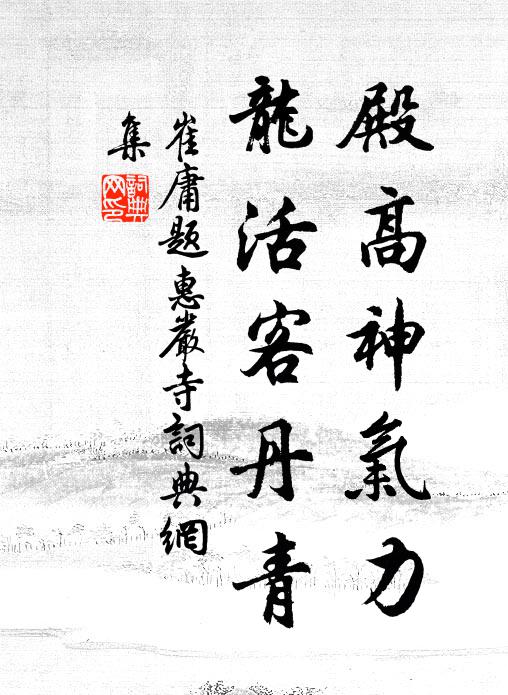 殿高神氣力
龍活客丹青
崔庸題惠嚴寺詞典網
集
詞典
网印